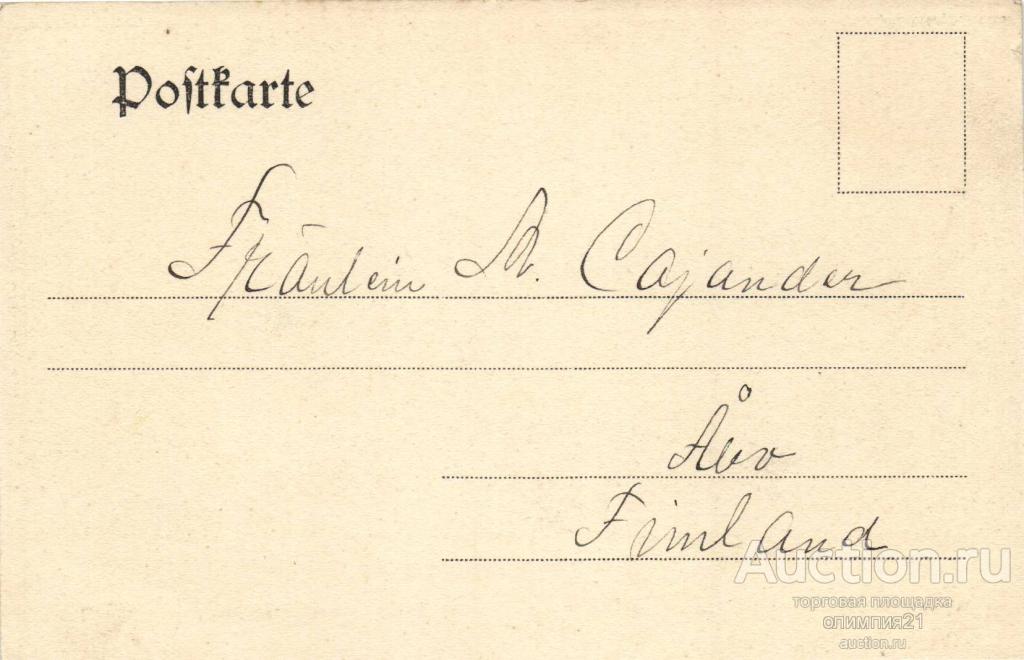 Postkarte
Fräulein A. Cajander
Åbo
Finland
Auction.ru
торговая площадка
олимпия21
auction.ru